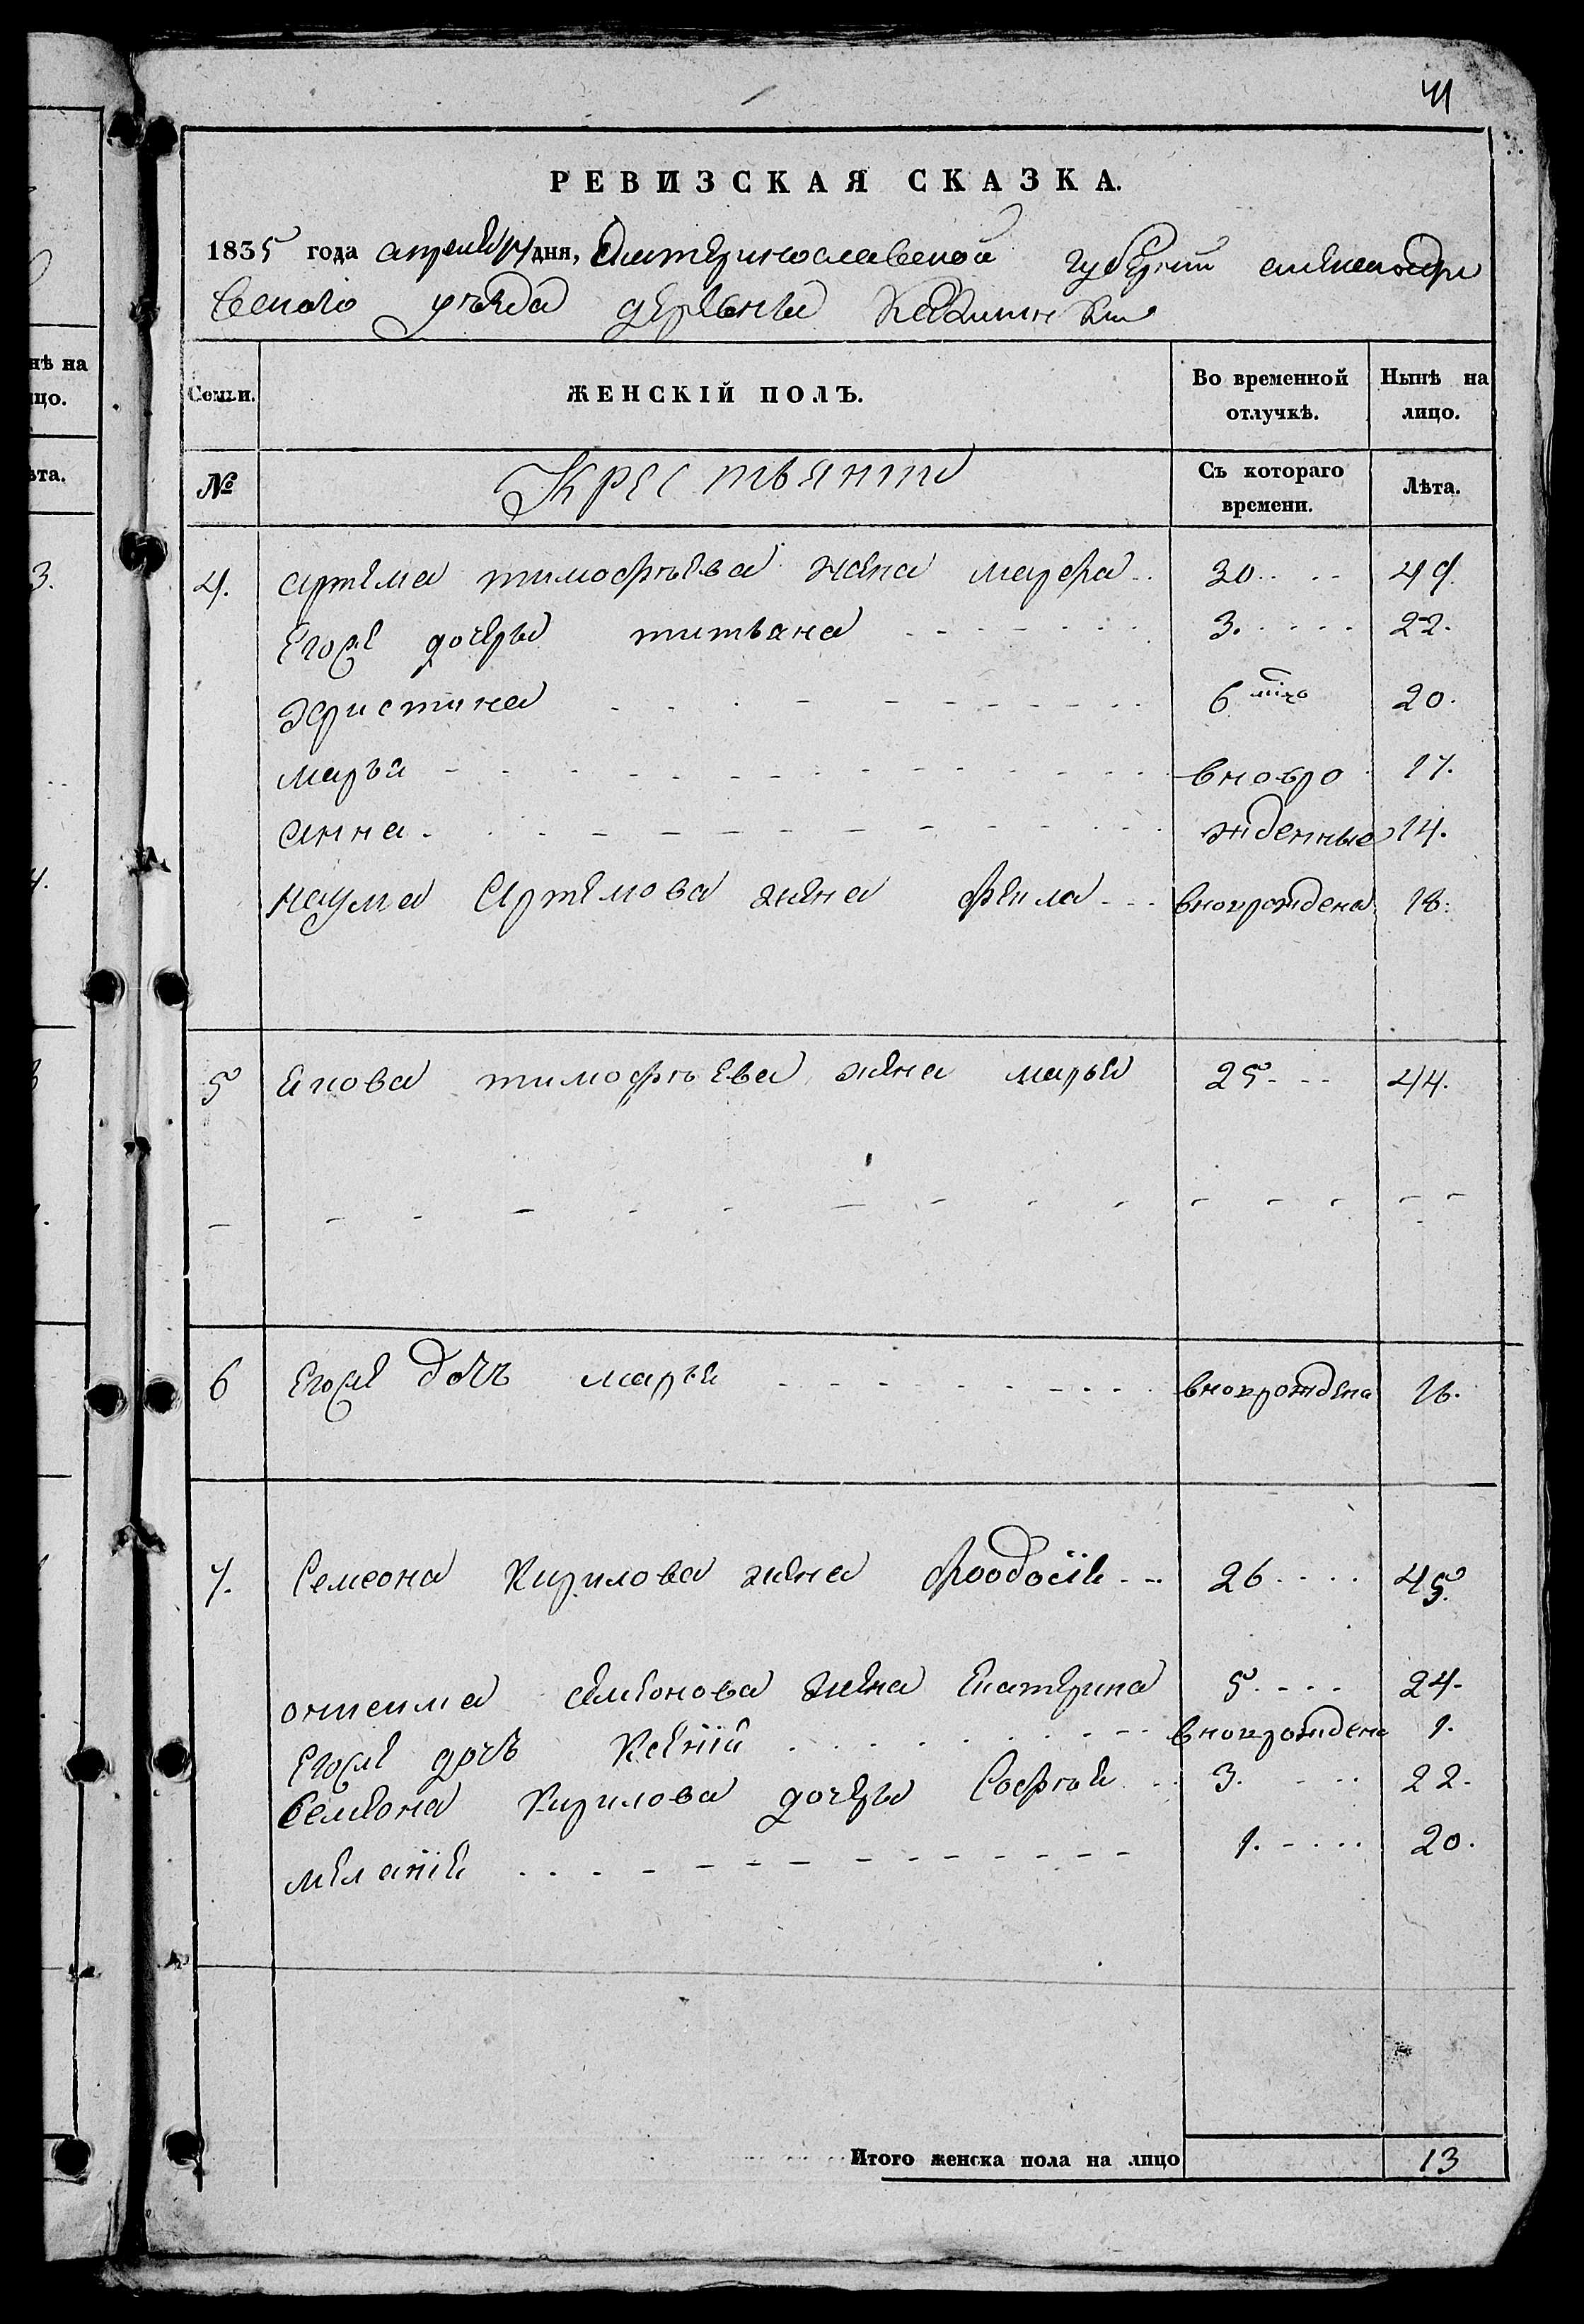 41
РЕВИЗСКАЯ СКАЗКА.
1835 года апреля 14 дня, Екатеринославской губернии александро
вского уезда деревни
Семьи. ЖЕНСКІЙ ПОЛЪ. Во временной отлучкѣ. Нынѣ на лицо.
№ Крестьянии Съ котораго времени. Лѣта.
4. артема тимофѣева жена марфа 30 49
Егоже дочери титьяна 3. 22.
христина 6 20.
марья вновро 17.
анна. жденные 14.
наума Артемова жена фекла вноврождена 18.
5 якова тимофѣева жена марья 25 44.
6 Егоже дочь марья вноврождена 16.
7. Семеона Кирилова жена Феодосія 26 45.
семионова жена Екатерина 5 24
Егоже дочь Ксенія вноврождена 1.
Семиона Кирилова дочери Софья 3. 22.
меланія 1. 20.
Итого женска пола на лицо 13
нѣ на
цо.
ѣта.
3.
4.